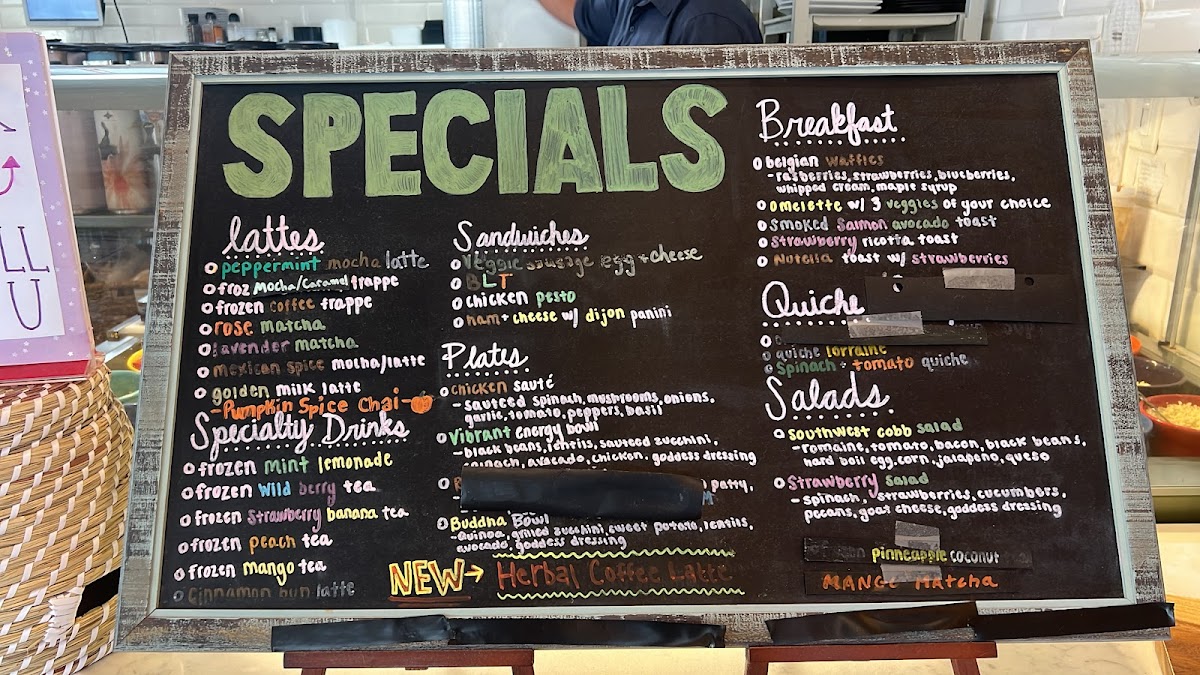 LL
U
SPECIALS
lattes
peppermint mocha latte
froz Mocha/Caramel frappe
frozen coffee frappe
rose matcha
lavender matcha
mexican spice mocha/latte
golden milk latte
-Pumpkin Spice Chai-
Specialty Drinks
frozen mint lemonade
frozen wild berry tea
frozen strawberry banana tea
frozen peach tea
frozen mango tea
cinnamon bun latte
Sandwiches
veggie sausage egg + cheese
BLT
chicken pesto
ham + cheese w/ dijon panini
Plates
chicken sauté
- sauteed spinach, mushrooms, onions,
garlic, tomato, peppers, basil
Vibrant energy bowl
- black beans, lentils, sauteed zucchini,
spinach, avocado, chicken, goddess dressing
patty,
Buddha Bowl
- Quinoa, grilled zucchini, sweet potato, lentils,
avocado, goddess dressing
NEW → Herbal Coffee Latte
Breakfast
belgian waffles
- rasberries, strawberries, blueberries,
whipped cream, maple syrup
omelette w/ 3 veggies of your choice
smoked salmon avocado toast
strawberry ricotta toast
Nutella toast w/ strawberries
Quiche
quiche lorraine
spinach + tomato quiche
Salads
southwest cobb salad
- romaine, tomato, bacon, black beans,
hard boil egg, corn, jalapeño, queso
strawberry salad
- spinach, strawberries, cucumbers,
pecans, goat cheese, goddess dressing
pinneapple coconut
MANGO MATCHA